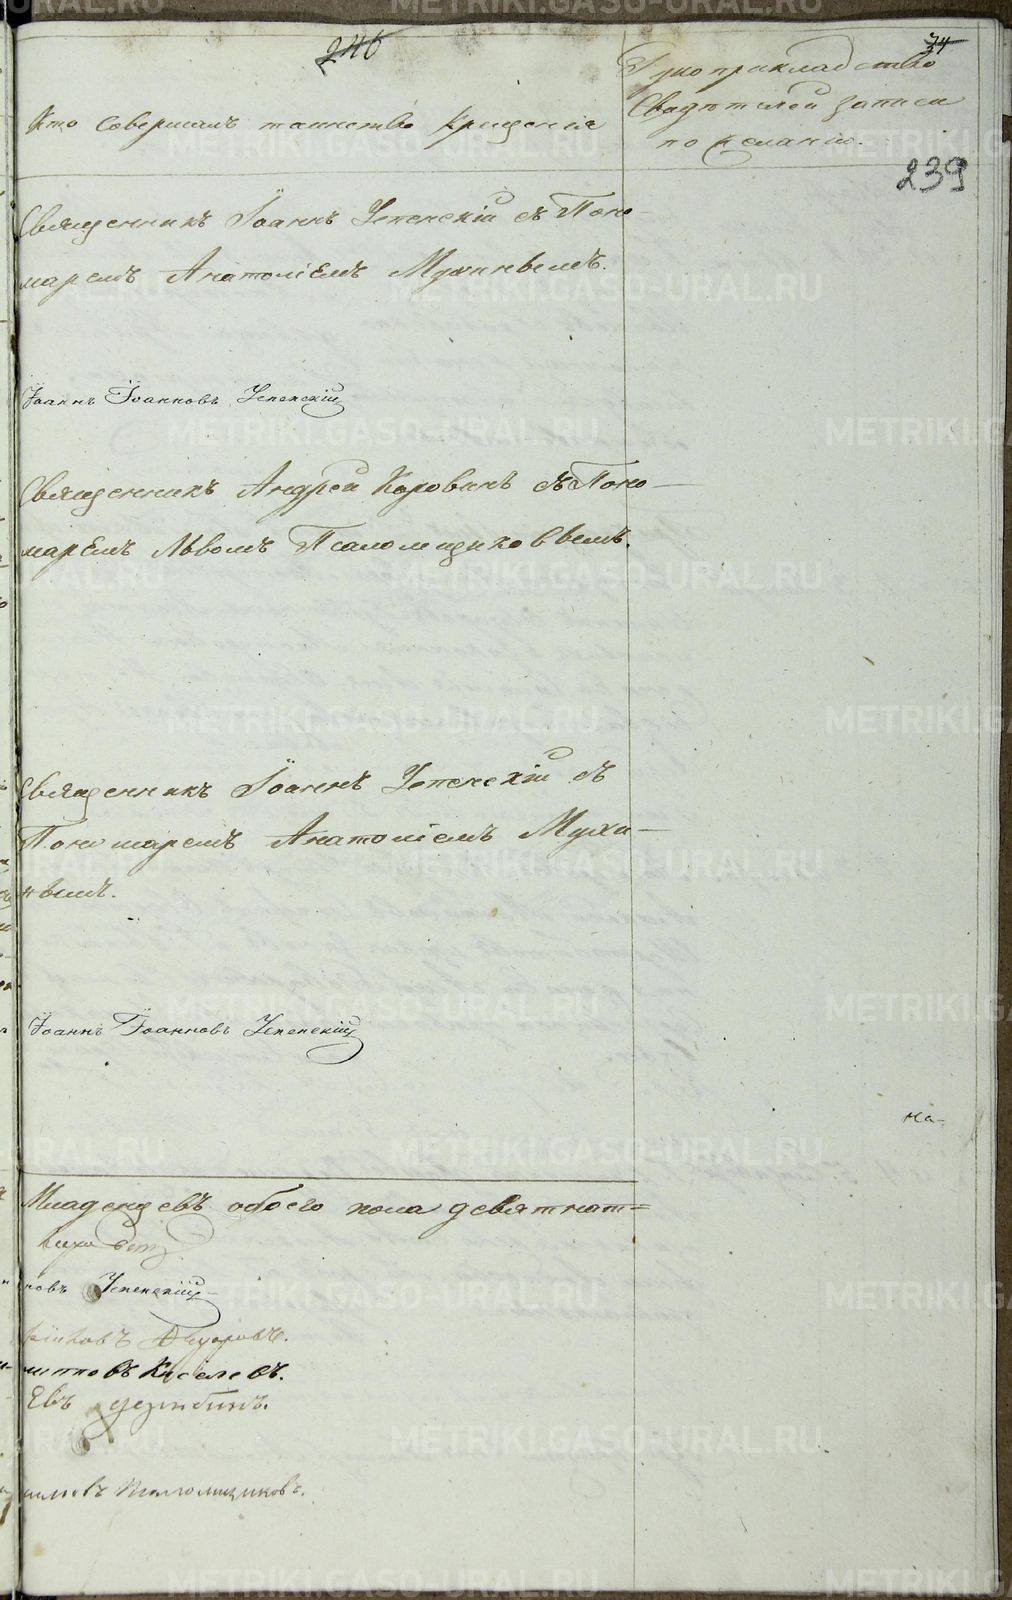 246
74
Рукоприкладство
Кто совершалъ таинство крещенія
свидѣтелей записи
по желанію.
239
Священникъ Іоаннъ Успенскій съ Поно-
маремъ Анатоліемъ Мухинымъ.
Іоаннъ Іоанновъ Успенскій
Священникъ Андрей Коровинъ съ Поно-
маремъ Львомъ Псаломщиковымъ.
Священникъ Іоаннъ Успенскій съ
Пономаремъ Анатоліемъ Мухи-
нымъ.
Іоаннъ Іоанновъ Успенскій
на-
Младенцевъ обоего пола девятнат=
новъ Успенскій
Ѳедоровъ.
Киселевъ.
евъ
Псаломщиковъ.
METRIKI.GASO-URAL.RU